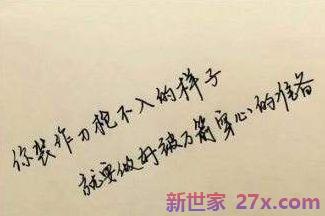 你装作刀枪不入的样子
就要做好被万箭穿心的准备
新世家 27x.com